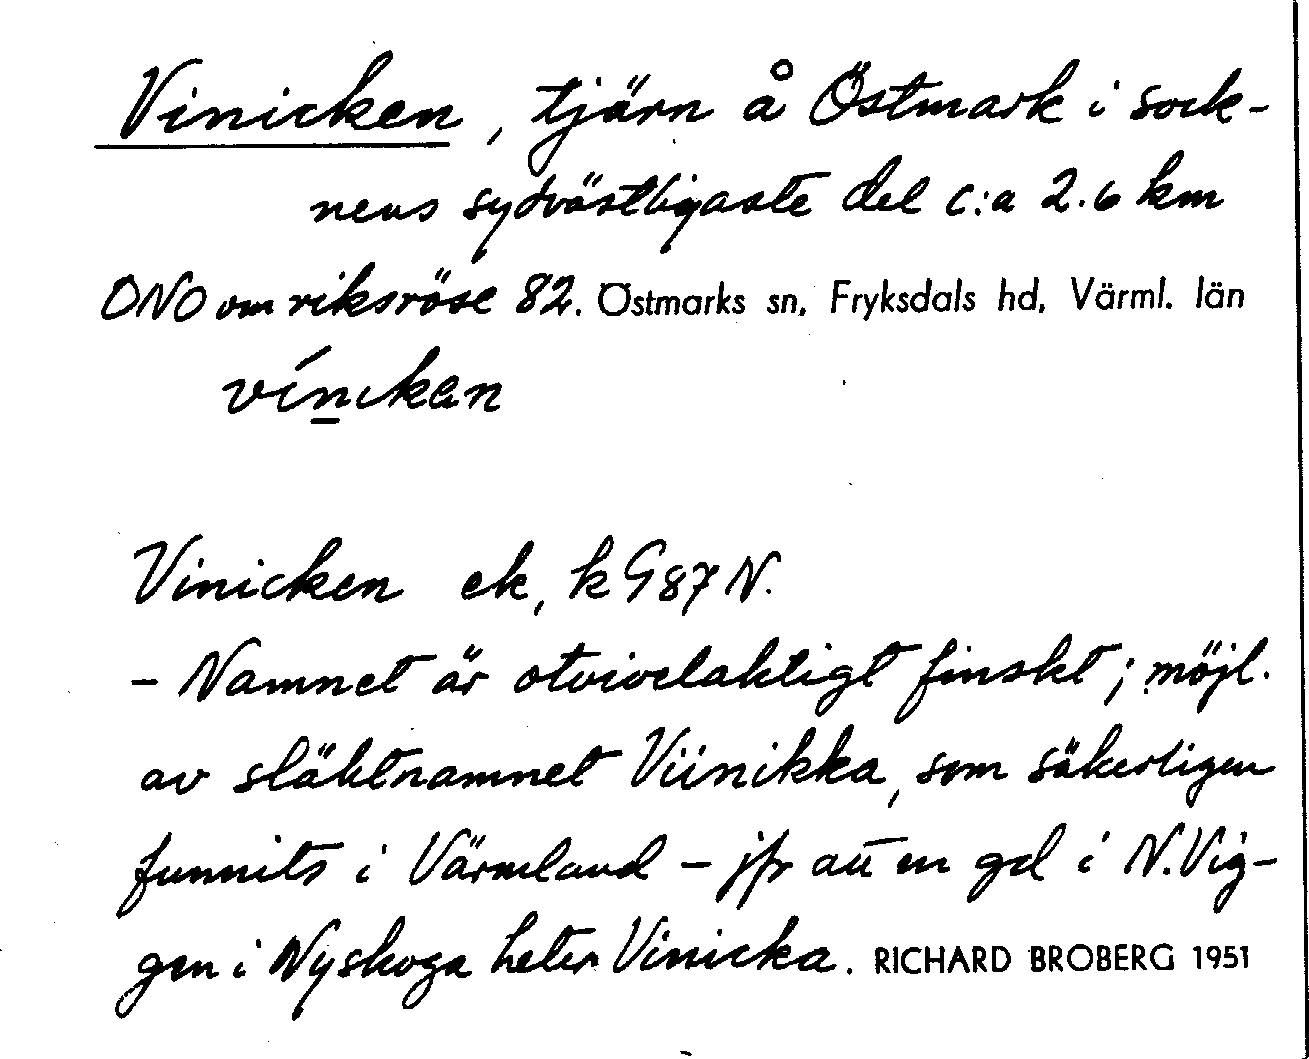 Vinicken, tjärn å Östmark i sock-
nens sydvästligaste del c:a 2.6 km
ONO om riksröse 82. Östmarks sn, Fryksdals hd, Värml. län
vínıken
Vinicken ek, k G87 N.
- Namnet är otvivelaktigt finskt; möjl.
av släktnamnet Viinikka, som säkerligen
funnits i Värmland - jfr att en gd i N. Vig-
gen i Nyskoga heter Vinicka. RICHARD BROBERG 1951